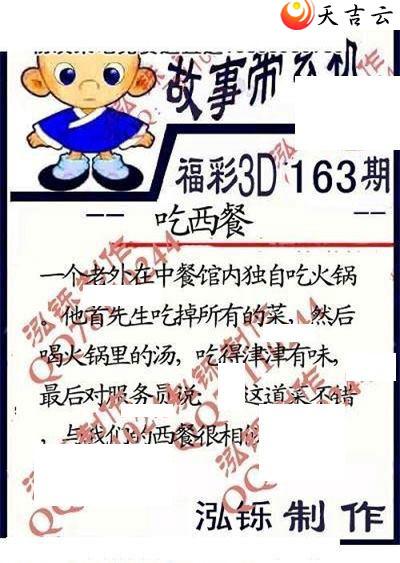 天吉云
故事带玄机
福彩3D 163期
吃西餐
一个老外在中餐馆内独自吃火锅
。他首先生吃掉所有的菜，然后
喝火锅里的汤，吃得津津有味，
最后对服务员说： 这道菜不错
，与我们的西餐很相
泓铄 制作